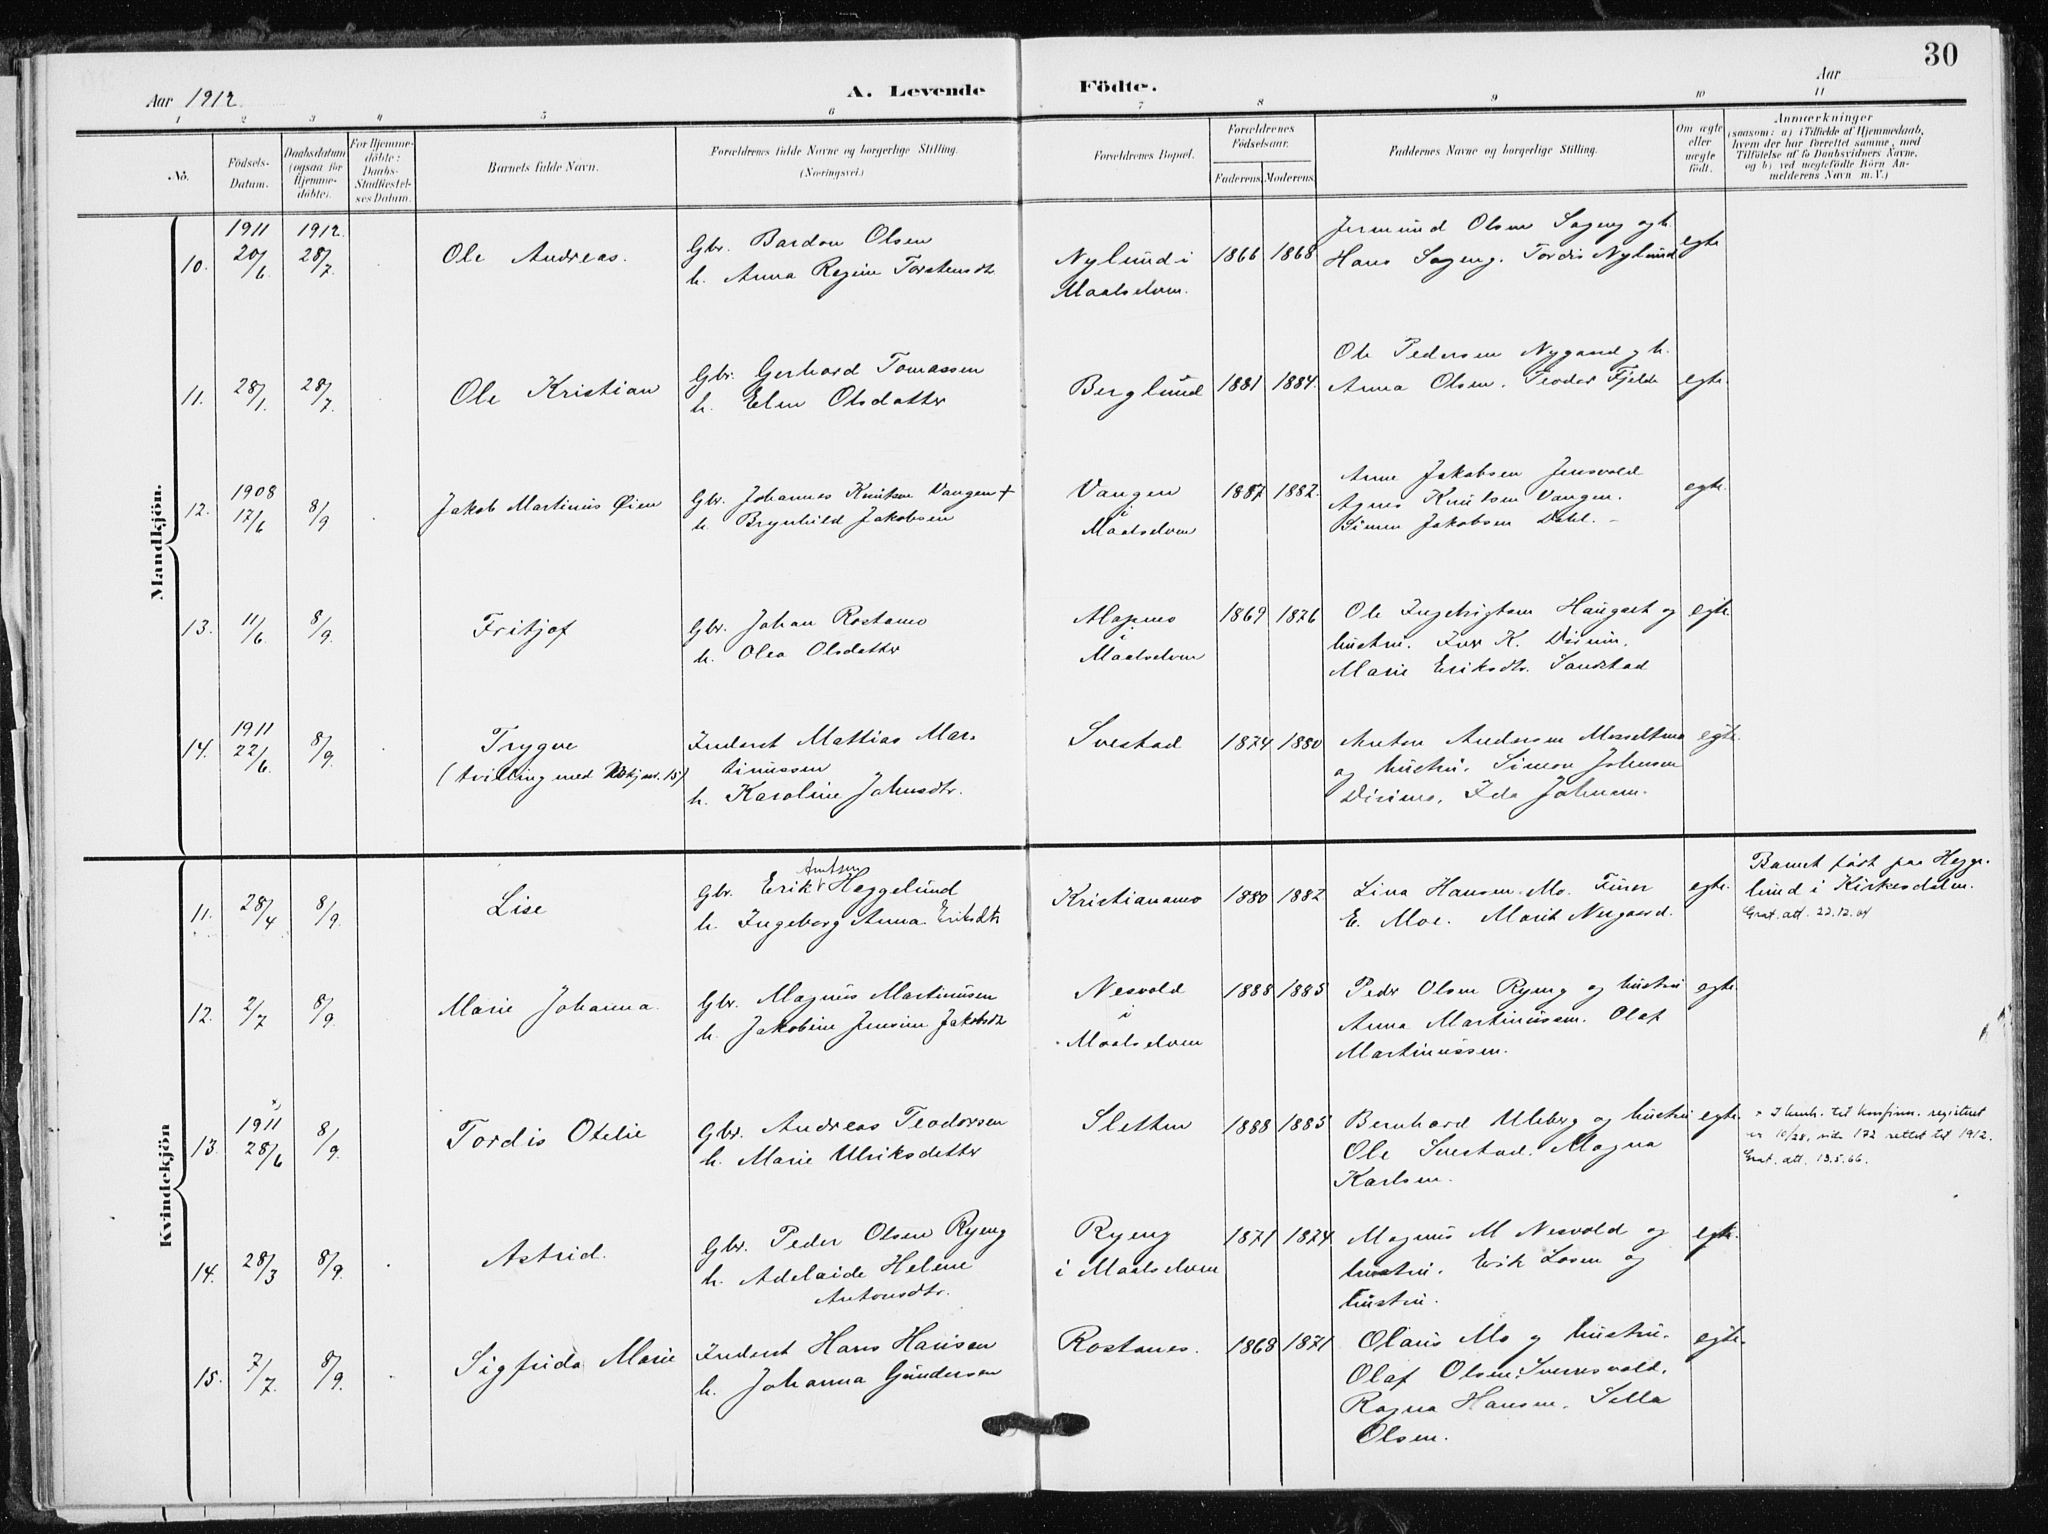 30
Aar 1912
A. Levende
Födte.
Aar
1 2 3 4 5 6 7 8 9 10 11
No.
Födsels-
Datum.
Daabsdatum
(ogsaa for
Hjemme-
döbte).
For Hjemme-
döbte:
Daabs-
Stadfæstel-
ses Datum.
Barnets fulde Navn.
Forældrenes fulde Navne og borgerlige Stilling.
(Næringsvei.)
Forældrenes Bopæl.
Forældrenes
Födselsaar.
Faderens. Moderens.
Faddernes Navne og borgerlige Stilling.
Om ægte
eller
uægte
födt.
Anmærkninger
(saasom: a) i Tilfælde af Hjemmedaab,
hvem der har forrettet samme, med
Tilföielse af to Daabsvidners Navne,
og b) ved uægtefödte Börn An-
melderens Navn m. V.)
Mandkjön.
10.
1911
20/6
1912
28/7.
Ole Andreas.
Gbr. Bardon Olsen
h. Anna Regine Torstensdtr
Nylund i
Maalselven.
1866 1868
Jermund Olsen Sageng og h.
Hans Sageng. Tordis Nylund
egte
11.
28/1.
28/7.
Ole Kristian
Gbr. Gerhard Tomassen
h. Elen Olsdatter
Berglund
1881 1884.
Ole Pedersen Nygaard g h.
Anna Olsen. Teodor Fjelde
egte.
12.
1908
17/6
8/9
Jakob Martinus Øien
Gbr. Johannes Knutsen Vangen +
h. Brynhild Jakobsen
Vangen
i
Maalselven
1887 1882.
Anne Jakobsen Jensvold
Agnes Knutsen Vangen.
Simon Jakobsen Dahl. -
egte.
13.
11/6
8/9.
Fritjof
Gbr. Johan Rostamo
h. Olea Olsdatter
Mo
i
Maalselven
1869 1876
Ole Ingebrigtsen Haugset og
hustru. Iver K.
Marie Eriksdtr. Sandstad
egte.
14.
1911
22/6
8/9.
Trygve
(tvilling med kjøn. 15)
Inderst Mattias Mar-
tinussen
h. Karoline Johnsdtr.
Svestad
1874 1880
Anton Andersen
og hustru. Simon Johnsen
Ida Johnsen.
egte.
Kvindekjön
11.
28/4
8/9.
Lise
Arntsen
Gbr. Erik Heggelund
h. Ingeborg Anna Eriksdtr
Kristianamo
1880 1882
Lina Hansen Mo. Einar
E. Moe. Marit Nergaard.
egte.
Barnet født paa Hegge-
lund i Kirkesdalen.
Grat. att. 22.12.04
12.
2/7
8/9.
Marie Johanna.
Gbr. Magnus Martinusen
h. Jakobine Jensine Jakobsdtr
Nesvold
i
Maalselven
1888 1885
Peder Olsen Ryeng og hustru
Anna Martinussen. Olaf
Martinussen.
egte.
13.
x)
1911
28/6
8/9.
Tordis Otelie
Gbr. Andreas Teodorsen
h. Marie Ulriksdatter
Sletten
1888 1885
Bernhard Uleberg og hustru
Ole Svestad. Magna
Karlsen.
egte.
x I henh. til konfirm. registeret
er 10/28, side 172 rettet til 1912.
Grat. att. 13.5.66.
14.
28/3
8/9.
Astrid.
Gbr. Peder Olsen Ryeng
h. Adelaide Helene
Antonsdtr.
Ryeng
i Maalselven
1871 1874.
Magnus M Nesvold og
hustru. Erik Losen og
hustru.
egte.
15.
7/7.
8/9.
Sigfrida Marie
Inderst Hans Hansen
h. Johanna Gundersen
Rostanes.
1868 1871
Olaus Mo g hustru.
Olaf Olsen Sverresvold.
Ragna Hansen. Sella
Olsen.
egte.